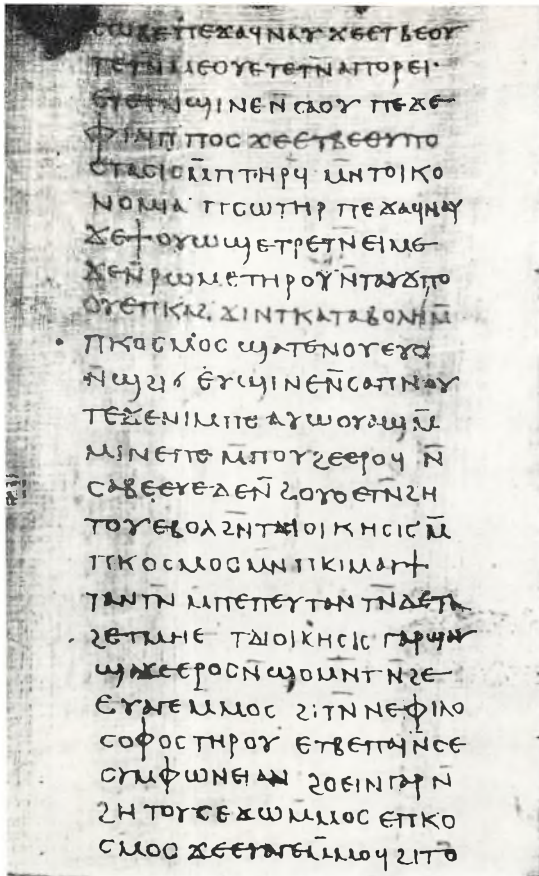 ⲥⲱⲃⲉⲡⲉϫⲁϥⲛⲁⲩϫⲉⲉⲧⲃⲉⲟⲩ
ⲧⲉⲧⲛ̄ⲙⲉⲟⲩⲉⲧⲉⲧⲛ̄ⲁⲡⲟⲣⲉⲓ·
ⲉⲧⲉⲧⲛ̄ϣⲓⲛⲉⲛ̄ⲥⲁⲟⲩ ⲡⲉϫⲉ
ⲫⲓⲗⲓⲡⲡⲟⲥ ϫⲉⲉⲧⲃⲉⲑⲩⲡⲟ
ⲥⲧⲁⲥⲓⲥⲙ̄ⲡⲧⲏⲣϥ ⲙⲛ̄ⲧⲟⲓⲕⲟ
ⲛⲟⲙⲓⲁ ⲡⲥⲱⲧⲏⲣ ⲡⲉϫⲁϥⲛⲁⲩ
ϫⲉϯⲟⲩⲱϣⲉⲧⲣⲉⲧⲛ̄ⲉⲓⲙⲉ
ϫⲉⲛ̄ⲣⲱⲙⲉⲧⲏⲣⲟⲩⲛ̄ⲧⲁⲩϫⲡⲟ
ⲟⲩⲉⲡⲕⲁϩ ϫⲓⲛⲧⲕⲁⲧⲁⲃⲟⲗⲏⲙ̄
ⲡⲕⲟⲥⲙⲟⲥ ϣⲁⲧⲉⲛⲟⲩⲉⲩⲟ
ⲛ̄ϣϩⲓϭ ⲉⲩϣⲓⲛⲉⲛ̄ⲥⲁⲡⲛⲟⲩ
ⲧⲉϫⲉⲛⲓⲙⲡⲉ ⲁⲩⲱⲟⲩⲁϣⲙ̄
ⲙⲓⲛⲉⲡⲉ ⲙ̄ⲡⲟⲩϩⲉⲉⲣⲟϥ ⲛ̄
ⲥⲁⲃⲉⲉⲩⲉⲇⲉⲛ̄ϩⲟⲩⲟⲉⲧⲛ̄ϩⲏ
ⲧⲟⲩⲉⲃⲟⲗϩⲛ̄ⲧⲇⲓⲟⲓⲕⲏⲥⲓⲥⲙ̄
ⲡⲕⲟⲥⲙⲟⲥⲙⲛ̄ⲡⲕⲓⲙⲁⲩϯ
ⲧⲁⲛⲧⲛ̄ ⲙ̄ⲡⲉⲡⲉⲩⲧⲁⲛⲧⲛ̄ⲇⲉⲧⲁ
ϩⲉⲧⲙⲏⲉ ⲧⲇⲓⲟⲓⲕⲏⲥⲓⲥ ⲅⲁⲣϣⲁⲩ
ϣⲁϫⲉⲉⲣⲟⲥⲛ̄ϣⲟⲙⲛⲧ ⲛ̄ϩⲉ
ⲉⲩⲁⲅⲉⲙⲙⲟⲥ ϩⲓⲧⲛ ⲛⲉⲫⲓⲗⲟ
ⲥⲟⲫⲟⲥⲧⲏⲣⲟⲩ ⲉⲧⲃⲉⲡⲁⲓⲛ̄ⲥⲉ
ⲥⲩⲙⲫⲱⲛⲉⲓⲁⲛ ϩⲟⲉⲓⲛⲅⲁⲣⲛ̄
ϩⲏⲧⲟⲩⲥⲉϫⲱⲙⲙⲟⲥ ⲉⲡⲕⲟ
ⲥⲙⲟⲥ ϫⲉⲉⲩⲁⲅⲉⲙ̄ⲙⲟϥϩⲓⲧⲟ